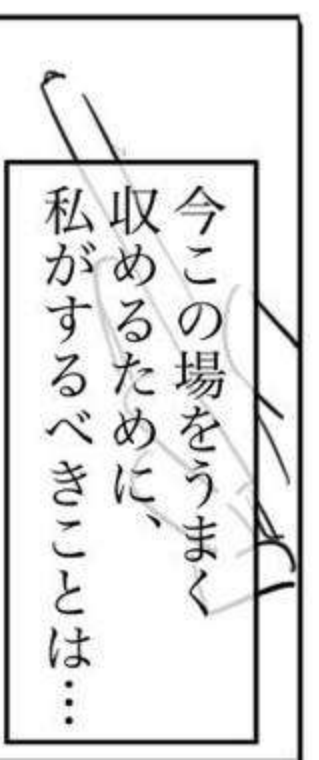 今この場をうまく
収めるために、
私がするべきことは…